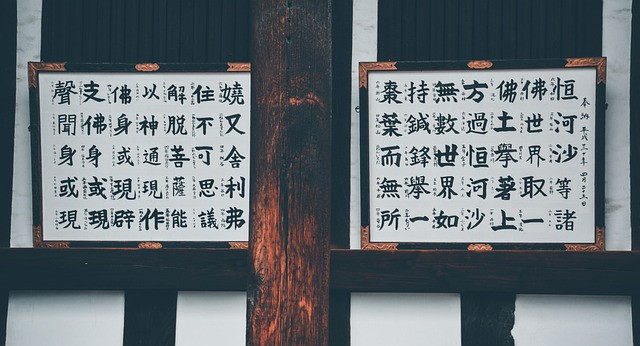 奉納
恒河沙等諸
佛世界取一
佛土擧著上
方過恒河沙
無數世界如
持鍼鋒擧一
棗葉而無所
嬈又舍利弗
住不可思議
解脱菩薩能
以神通現作
佛身或現辟
支佛身或現
聲聞身或現